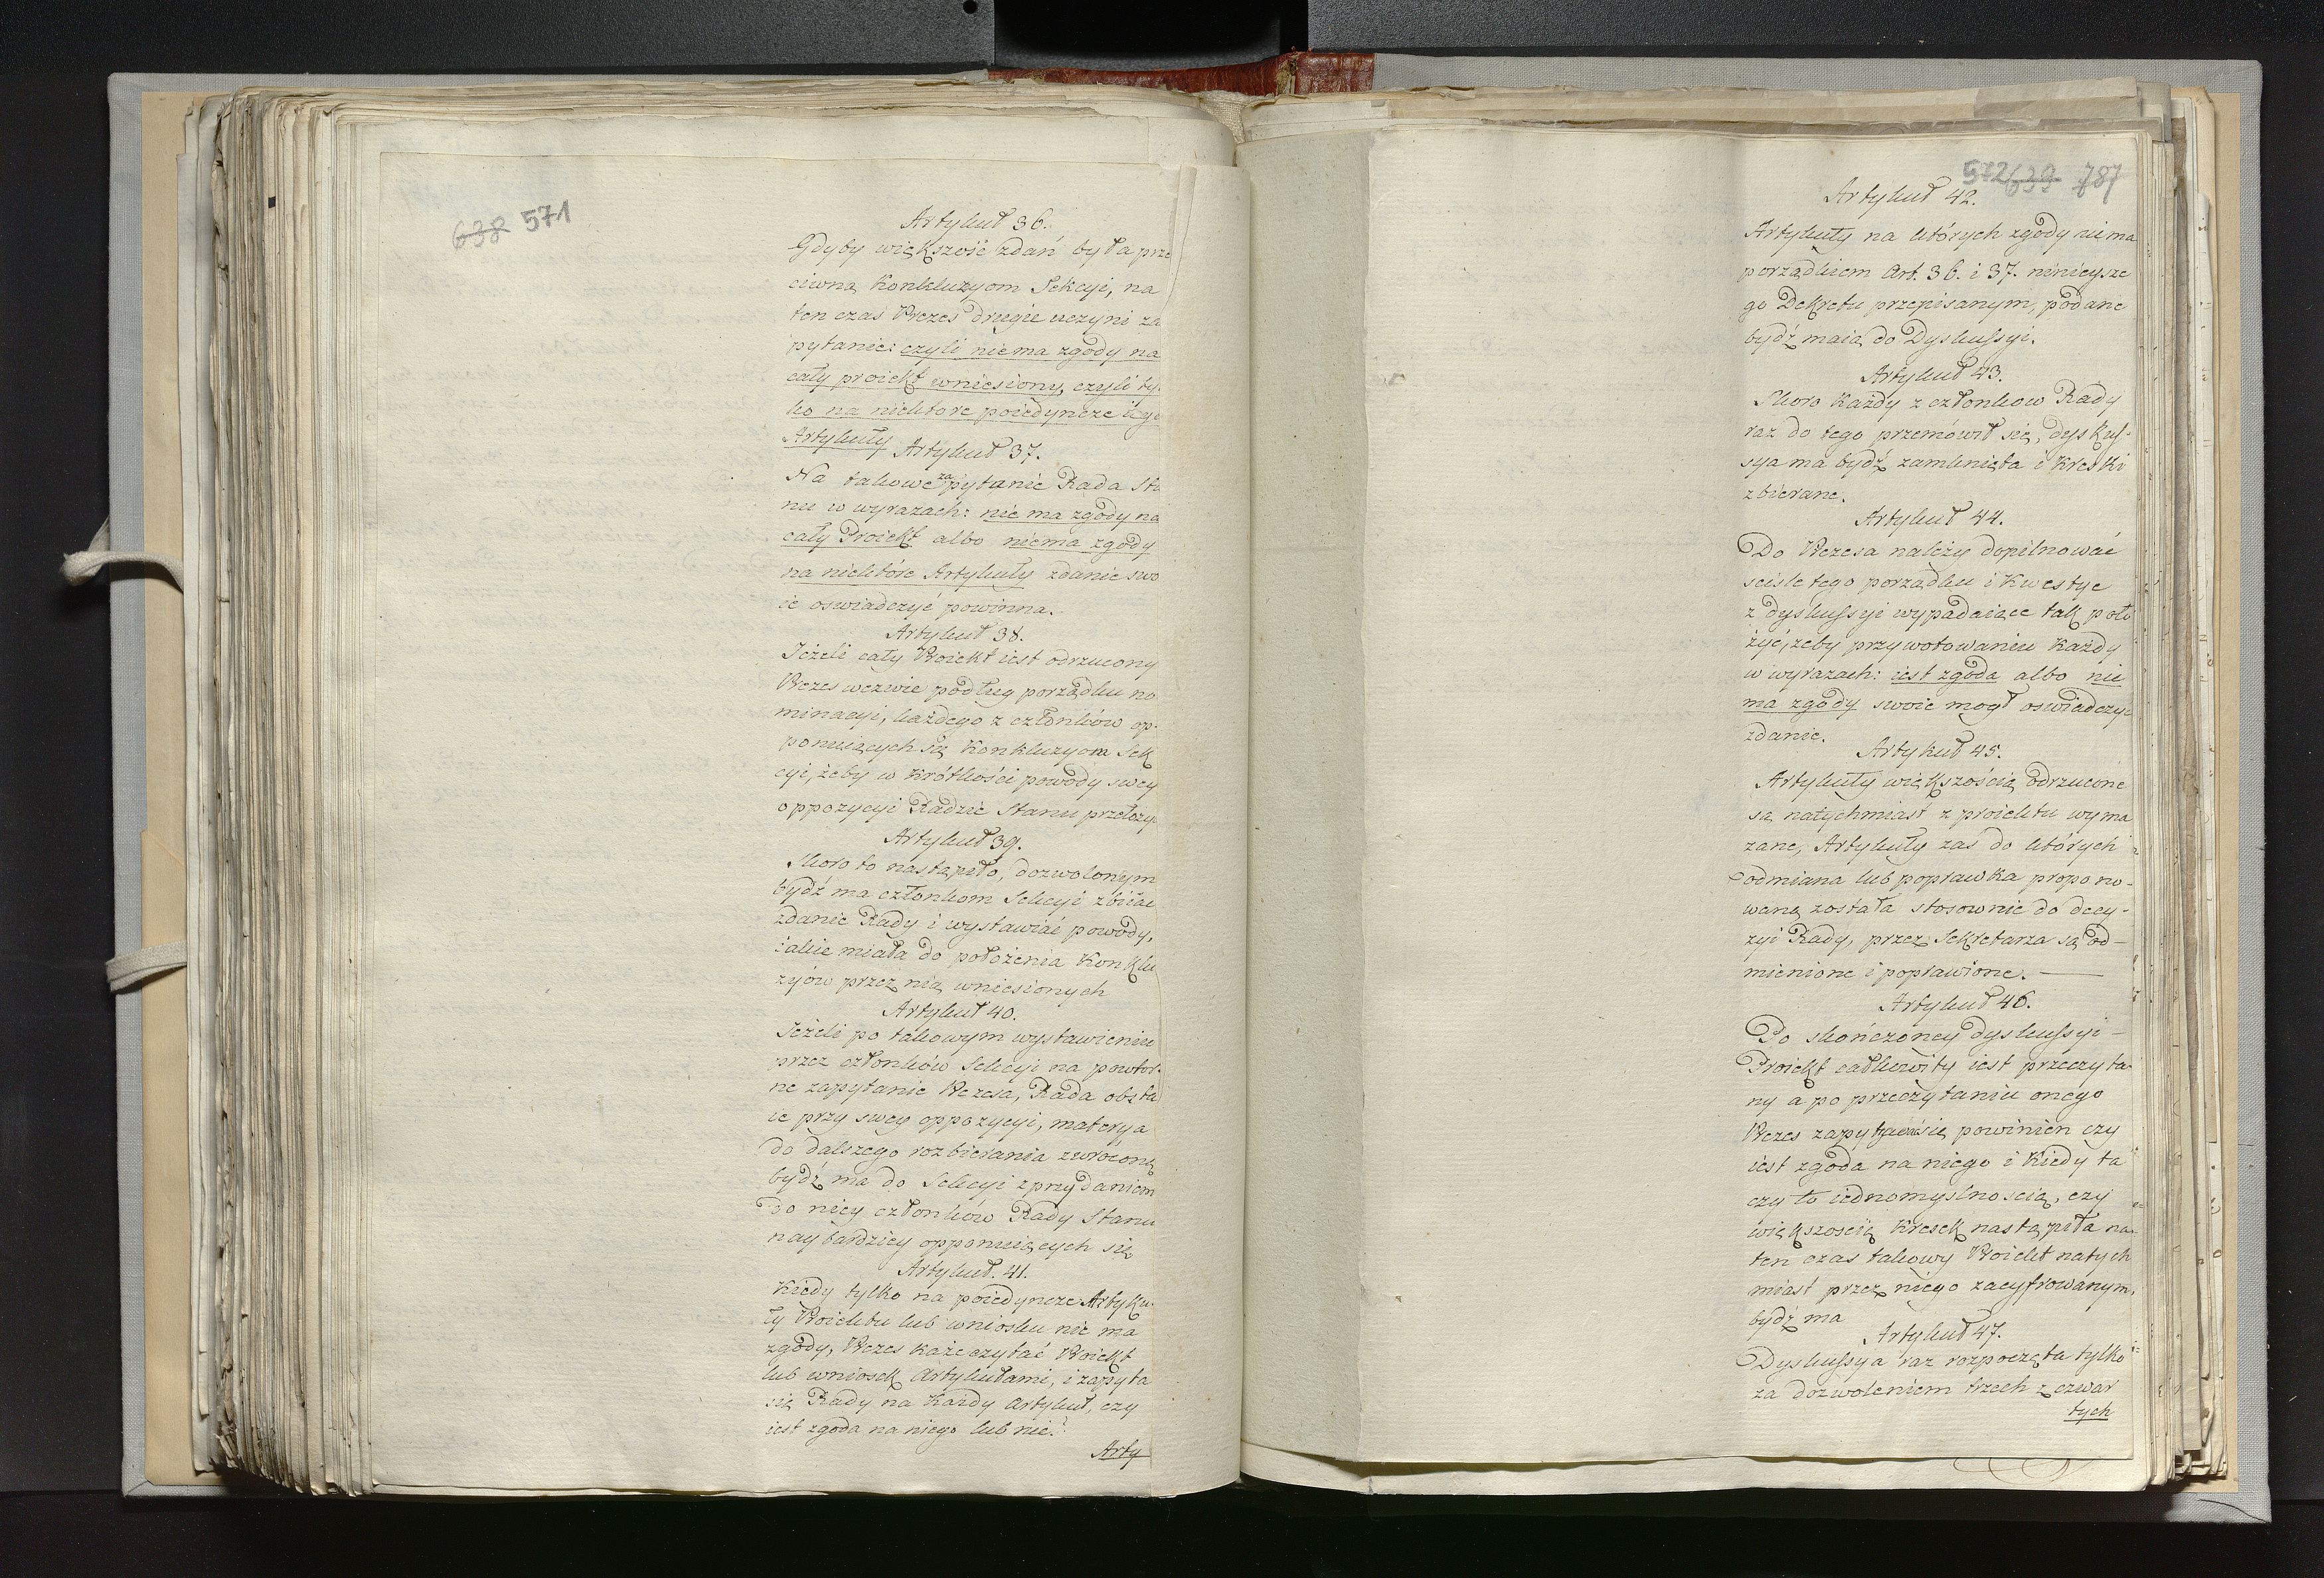 638 571
Artykuł 36.
Gdyby większość zdań była prze
ciwną Konkluzyom Sekcyi, na
ten czas Prezes drugie uczyni za
pytanie: czyli niema zgody na
cały proiekt wniesiony, czyli tyl
ko na niektore poiedyncze iego
Artykuły
Artykuł 37.
Na takowe zapytanie Rada Sta
nu w wyrazach: nie ma zgody na
cały Proiekt albo niema zgody
na niektóre Artykuły zdanie swo
ie oswiadczyć powinna.
Artykuł 38.
Jeżeli cały Proiekt iest odrzucony
Prezes wezwie podług porządku no
minacyi, każdego z członków op-
ponuiących się Konkluzyom Sek
cyi, żeby w krótkości powody swey
oppozycyi Radzie Stanu przełożył
Artykuł 39.
Skoro to nastąpiło, dozwolonym
bydź ma członkom Sekcyi zbiiać
zdanie Rady i wystawiać powody,
iakie miała do położenia Konklu
zyów przez nią wniesionych
Artykuł 40.
Jeżeli po takowym wystawieniu
przez członków Sekcyi na powtor-
ne zapytanie Prezesa, Rada obsta
ie przy swey oppozycyi, materya
do dalszego rozbierania zwroconą
bydź ma do Sekcyi z przydaniem
do niey członków Rady Stanu
naybardziey opponuiących się
Artykuł. 41.
Kiedy tylko na poiedyncze Artyku-
ły Proiektu lub wniosku nie ma
zgody, Prezes każe czytać Proiekt
lub wniosek Artykułami, i zapyta
się Rady na Każdy Artykuł, czy
iest zgoda na niego lub nie?
Arty
572 639 787
Artykuł 42.
Artykuły na których zgody niema
porządkiem Art. 36. i 37. ninieysze
go Dekretu przepisanym, podane
bydź maią do Dyskussyi.
Artykuł 43.
Skoro Każdy z członkow Rady
raz do tego przemówił się, dyskus-
sya ma bydź zamknięta i Kreski
zbierane.
Artykuł 44.
Do Prezesa należy dopilnować
scisle tego porządku i Kwestye
z dyskussyi wypadaiące tak poło
żyć, żeby przy wotowaniu Każdy
w wyrazach: iest zgoda albo nie
ma zgody swoie mogł oswiadczyć
zdanie.
Artykuł 45.
Artykuły większością odrzucone
są natychmiast z proiektu wyma
zane, Artykuły zas do których
odmiana lub poprawka propono-
waną została stosownie do decy-
zyi Rady, przez Sekretarza są od-
mienione i poprawione.
Artykuł 46.
Po skończoney dyskussyi
Proiekt całkowity iest przeczyta-
ny a po przeczytaniu onego
Prezes zapytać się powinien czy
iest zgoda na niego i Kiedy ta
czy to iednomyslnością, czy
większością Kresek nastąpiła na-
ten czas takowy Proiekt natych
miast przez niego zacyfrowanym,
bydź ma
Artykuł 47.
Dyskussya raz rozpoczęta tylko
za dozwoleniem trzech z czwar
tych